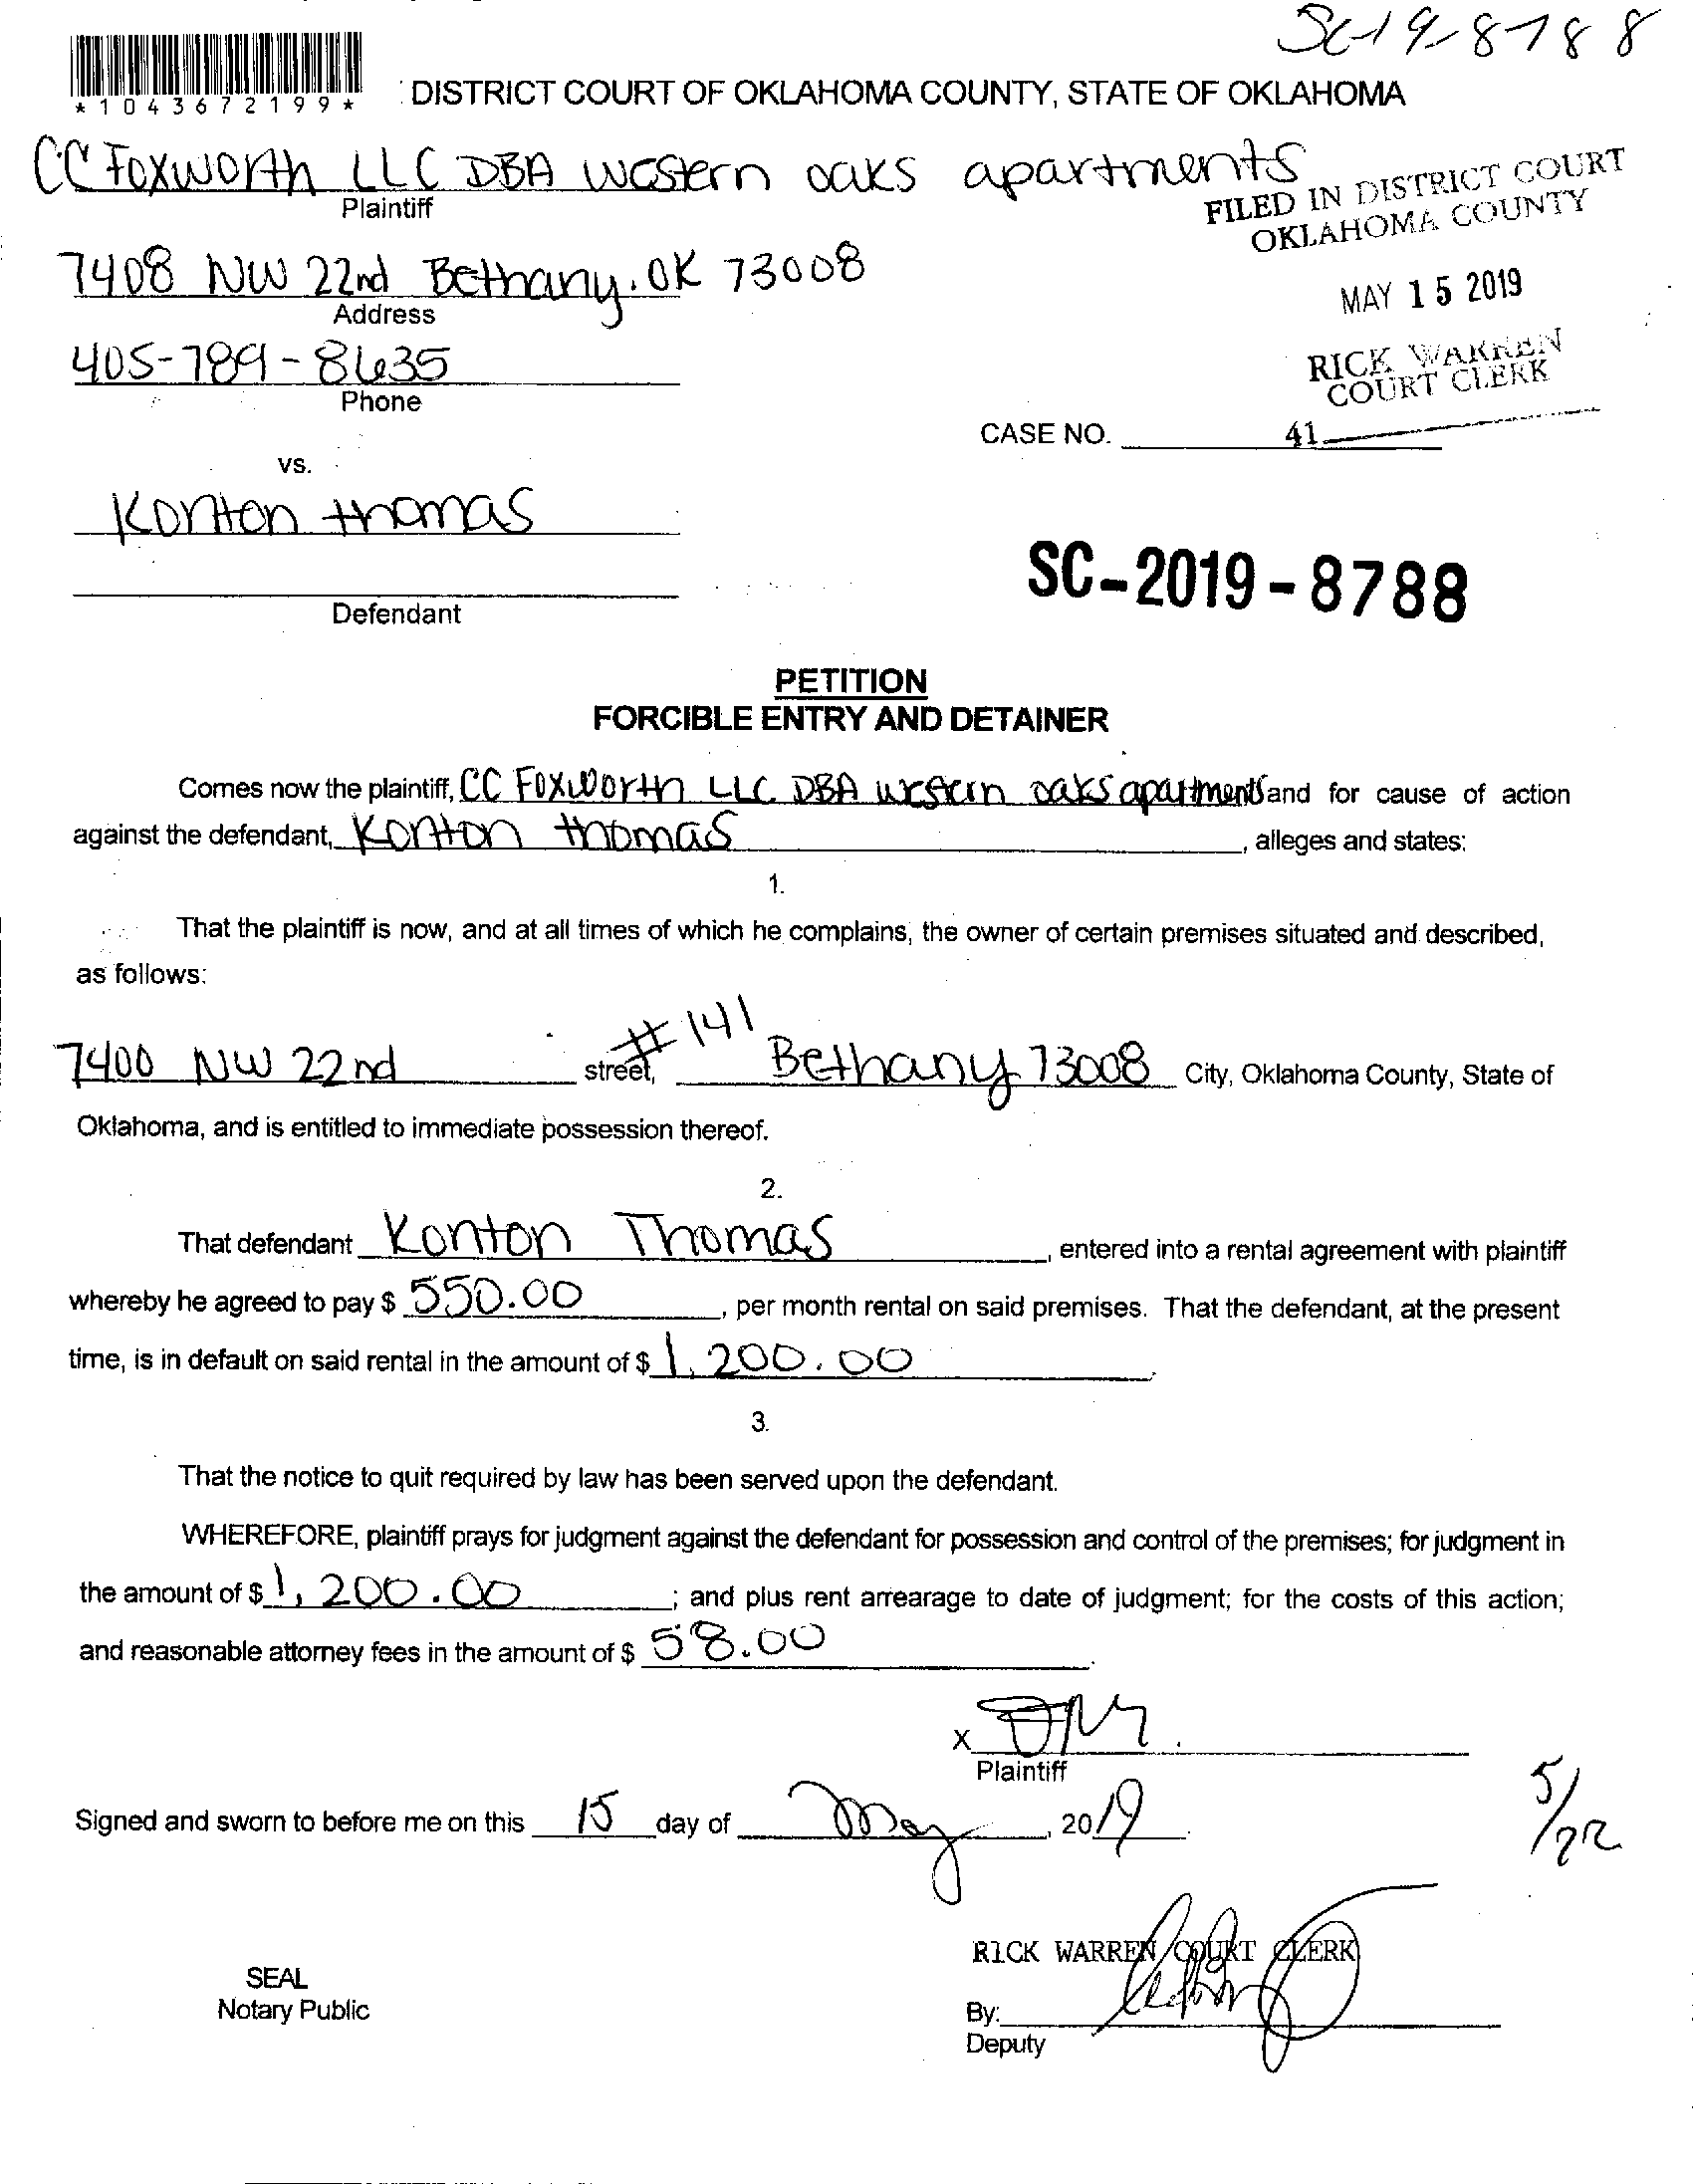 SC-19-8788
*1043672199*
DISTRICT COURT OF OKLAHOMA COUNTY, STATE OF OKLAHOMA
CC Foxworth LLC DBA western oaks apartments
Plaintiff
FILED IN DISTRICT COURT
OKLAHOMA COUNTY
7408 NW 22nd Bethany. OK 73008
Address
MAY 15 2019
405-789-8635
Phone
RICK WARREN
COURT CLERK
CASE NO. 41
vs.
Konton thomas
SC-2019-8788
Defendant
PETITION
FORCIBLE ENTRY AND DETAINER
Comes now the plaintiff, CC Foxworth LLC DBA western oaks apartments and for cause of action
against the defendant, Konton thomas, alleges and states:
1.
That the plaintiff is now, and at all times of which he complains, the owner of certain premises situated and described,
as follows:
7400 NW 22nd street, #141 Bethany 73008 City, Oklahoma County, State of
Oklahoma, and is entitled to immediate possession thereof.
2.
That defendant Konton Thomas, entered into a rental agreement with plaintiff
whereby he agreed to pay $ 550.00, per month rental on said premises. That the defendant, at the present
time, is in default on said rental in the amount of $ 1,200.00.
3.
That the notice to quit required by law has been served upon the defendant.
WHEREFORE, plaintiff prays for judgment against the defendant for possession and control of the premises; for judgment in
the amount of $ 1,200.00; and plus rent arrearage to date of judgment; for the costs of this action;
and reasonable attorney fees in the amount of $ 58.00.
X
Plaintiff
Signed and sworn to before me on this 15 day of May, 2019
5/22
RICK WARREN COURT CLERK
SEAL
Notary Public
By:
Deputy